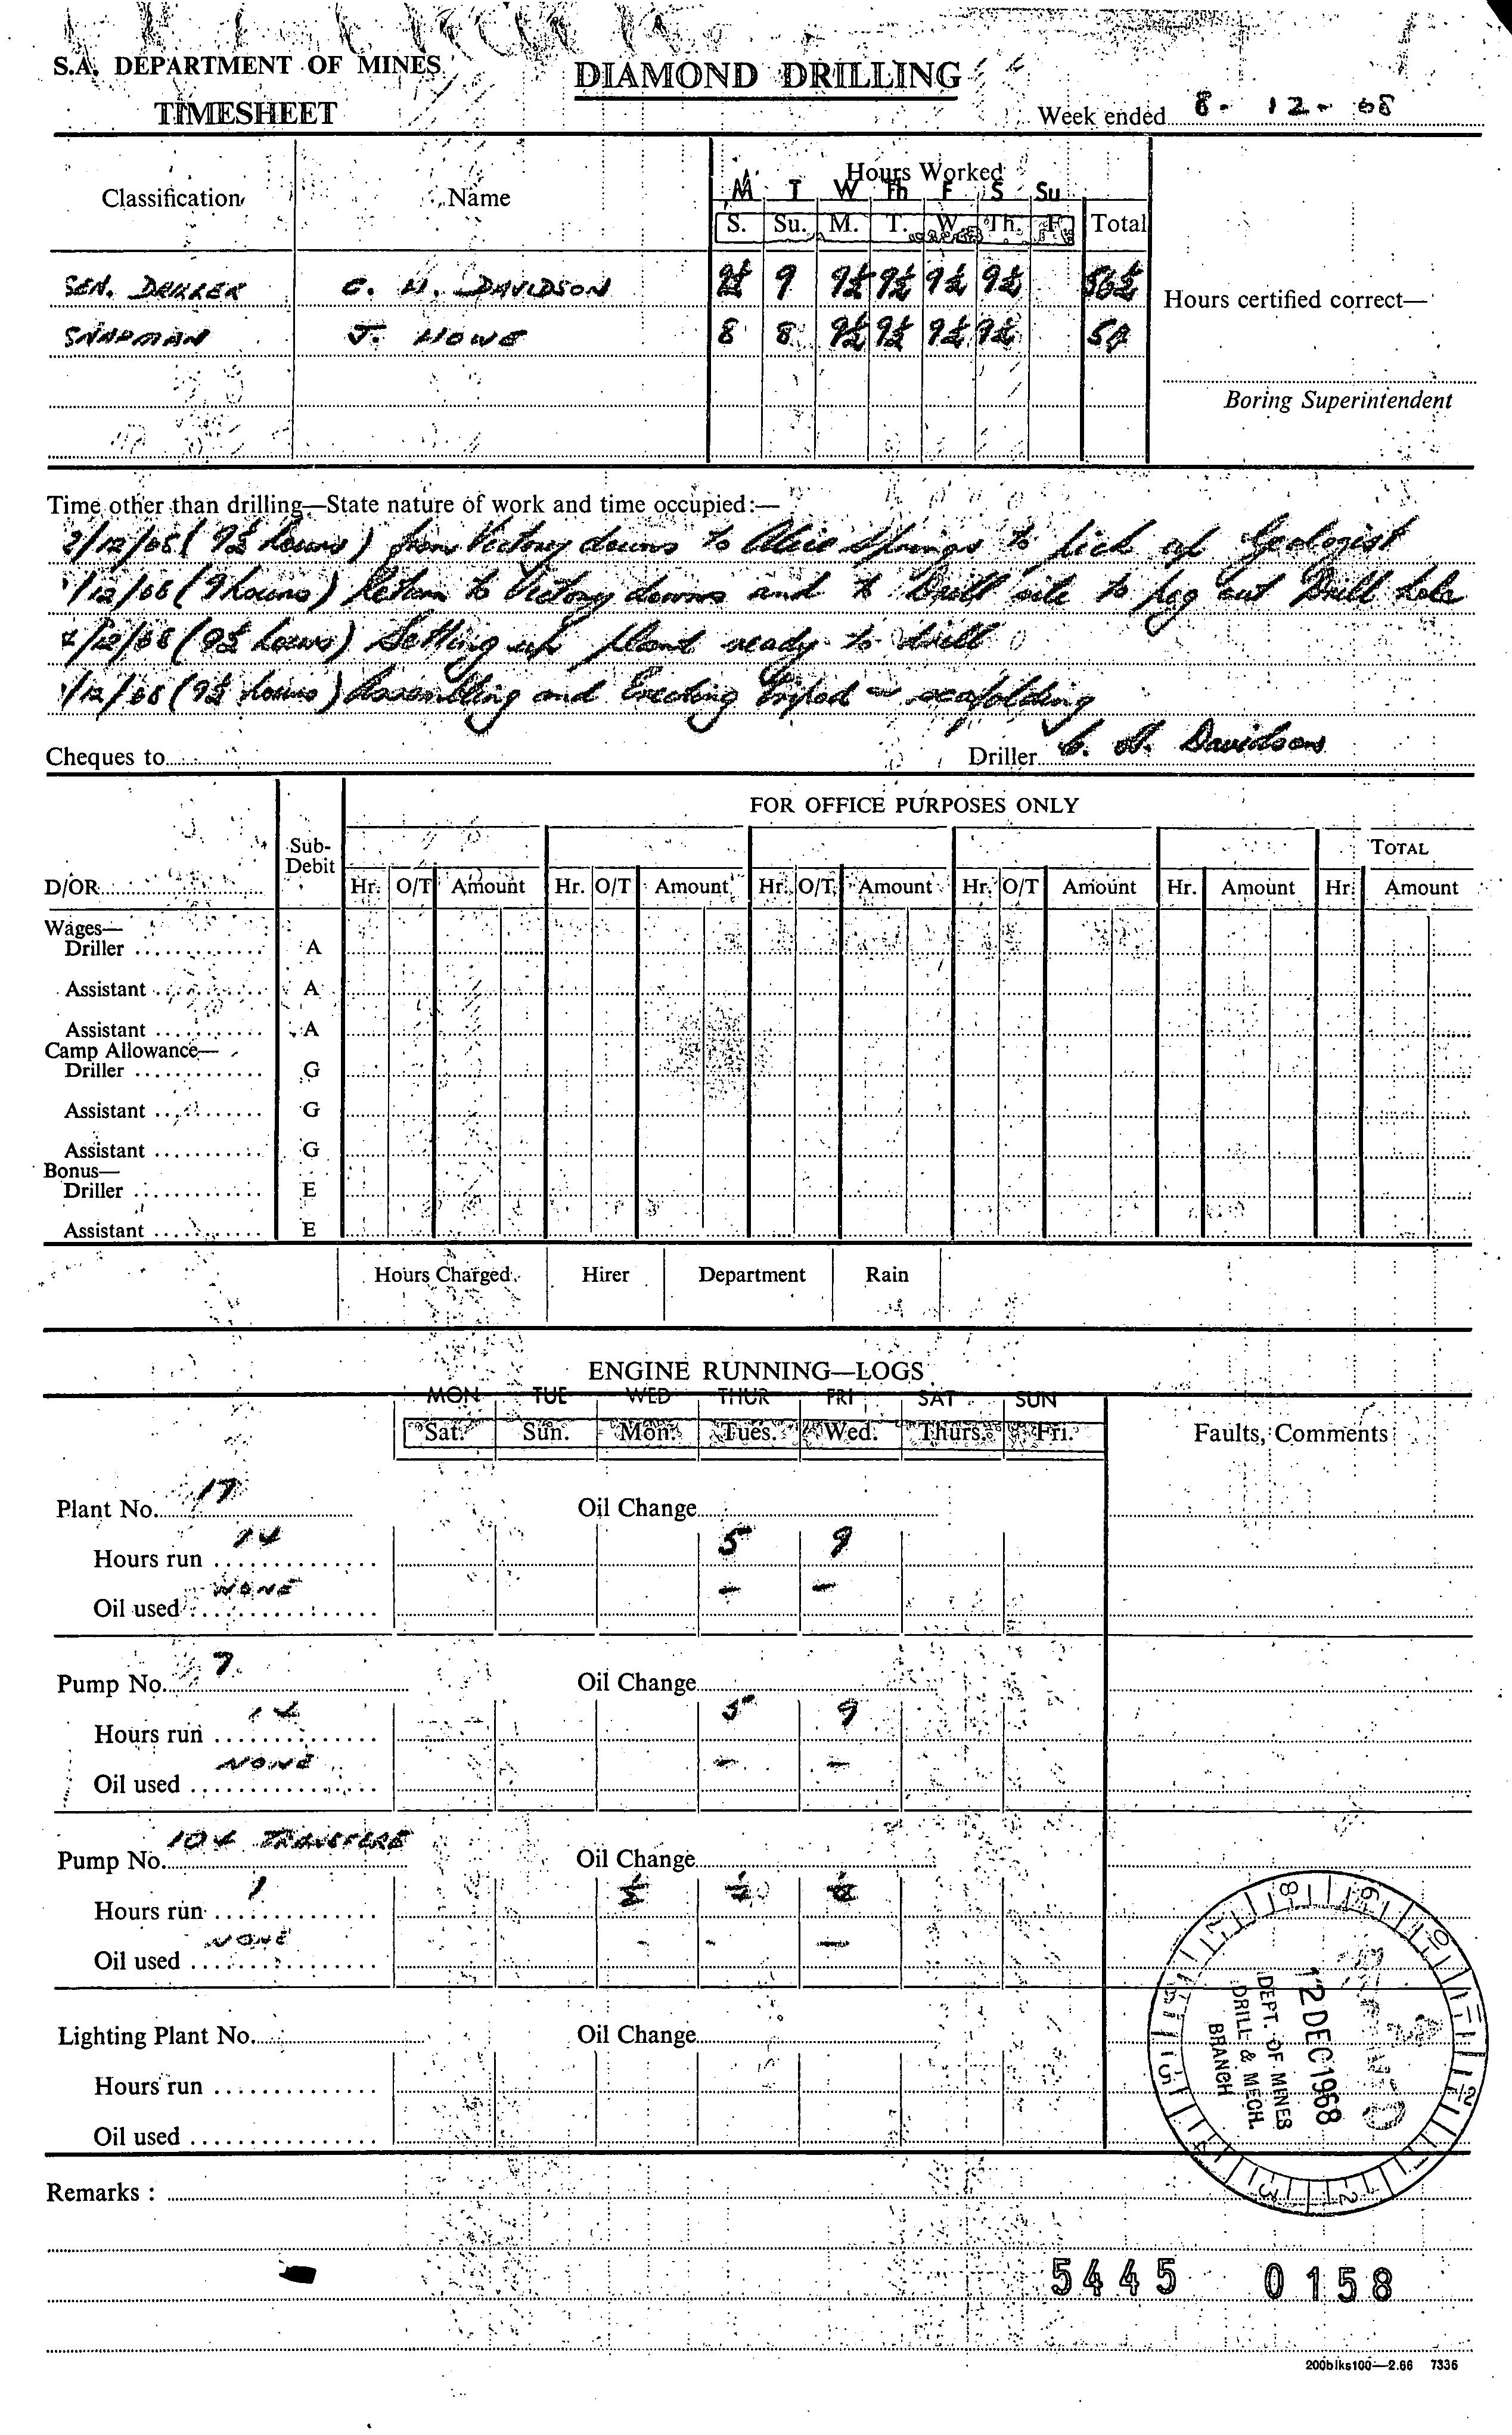 S.A. DEPARTMENT OF MINES
DIAMOND DRILLING
TIMESHEET
Week ended 8 - 12 - 68
Classification Name Hours Worked
M T W Th F S Su
S. Su. M. T. W. Th. F. Total
SEN. DRILLER C. H. DAVIDSON 9½ 9 9½ 9½ 9½ 9½ 56½
J. HOWE 8 8 9½ 9½ 9½ 9½ 54
Hours certified correct—
Boring Superintendent
Time other than drilling—State nature of work and time occupied:—
2/12/68 (9½ hours) from Victory downs to Alice Springs to pick up Geologist
/12/68 (9 hours) Return to Victory downs and to Drill site to peg out Drill hole
4/12/68 (9½ hours) Setting up plant ready to drill
/12/68 (9½ hours) Assembling and Erecting Tripod scafolding
Cheques to
Driller C. H. Davidson
FOR OFFICE PURPOSES ONLY
D/OR Sub-Debit TOTAL
Hr. O/T Amount Hr. O/T Amount Hr. O/T Amount Hr. O/T Amount Hr. Amount Hr. Amount
Wages—
Driller A
Assistant A
Assistant A
Camp Allowance—
Driller G
Assistant G
Assistant G
Bonus—
Driller E
Assistant E
Hours Charged Hirer Department Rain
ENGINE RUNNING—LOGS
MON TUE WED THUR FRI SAT SUN
Sat. Sun. Mon. Tues. Wed. Thurs. Fri. Faults, Comments
Plant No. 17 Oil Change
Hours run 14 5 9
Oil used NONE - -
Pump No. 7 Oil Change
Hours run 14 5 9
Oil used NONE - -
Pump No. 104 TRANSFERE Oil Change
Hours run 1 ½
Oil used NONE - - -
Lighting Plant No. Oil Change
Hours run
Oil used
12 DEC 1968
DEPT. OF MINES
DRILL & MECH.
BRANCH
Remarks :
5445 0158
200blks100—2.66 7336